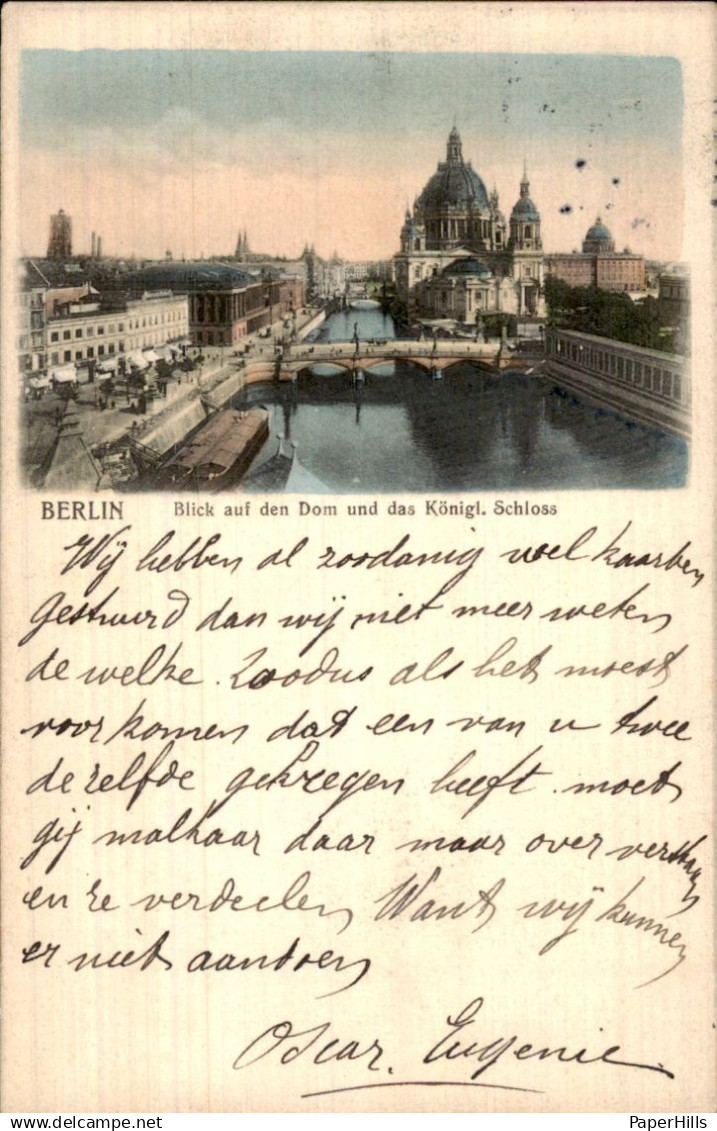 BERLIN Blick auf den Dom und das Königl. Schloss
Wij hebben al zoodanig veel kaarten
gestuurd dan wij niet meer weten
de welke. Zoodus als het moest
voorkomen dat een van u twee
dezelfde gekregen heeft. moet
gij malkaar daar maar over verstaan
en ze verdeelen Want wij kunnen
er niet aandoen
Oscar. Eugenie
PaperHills